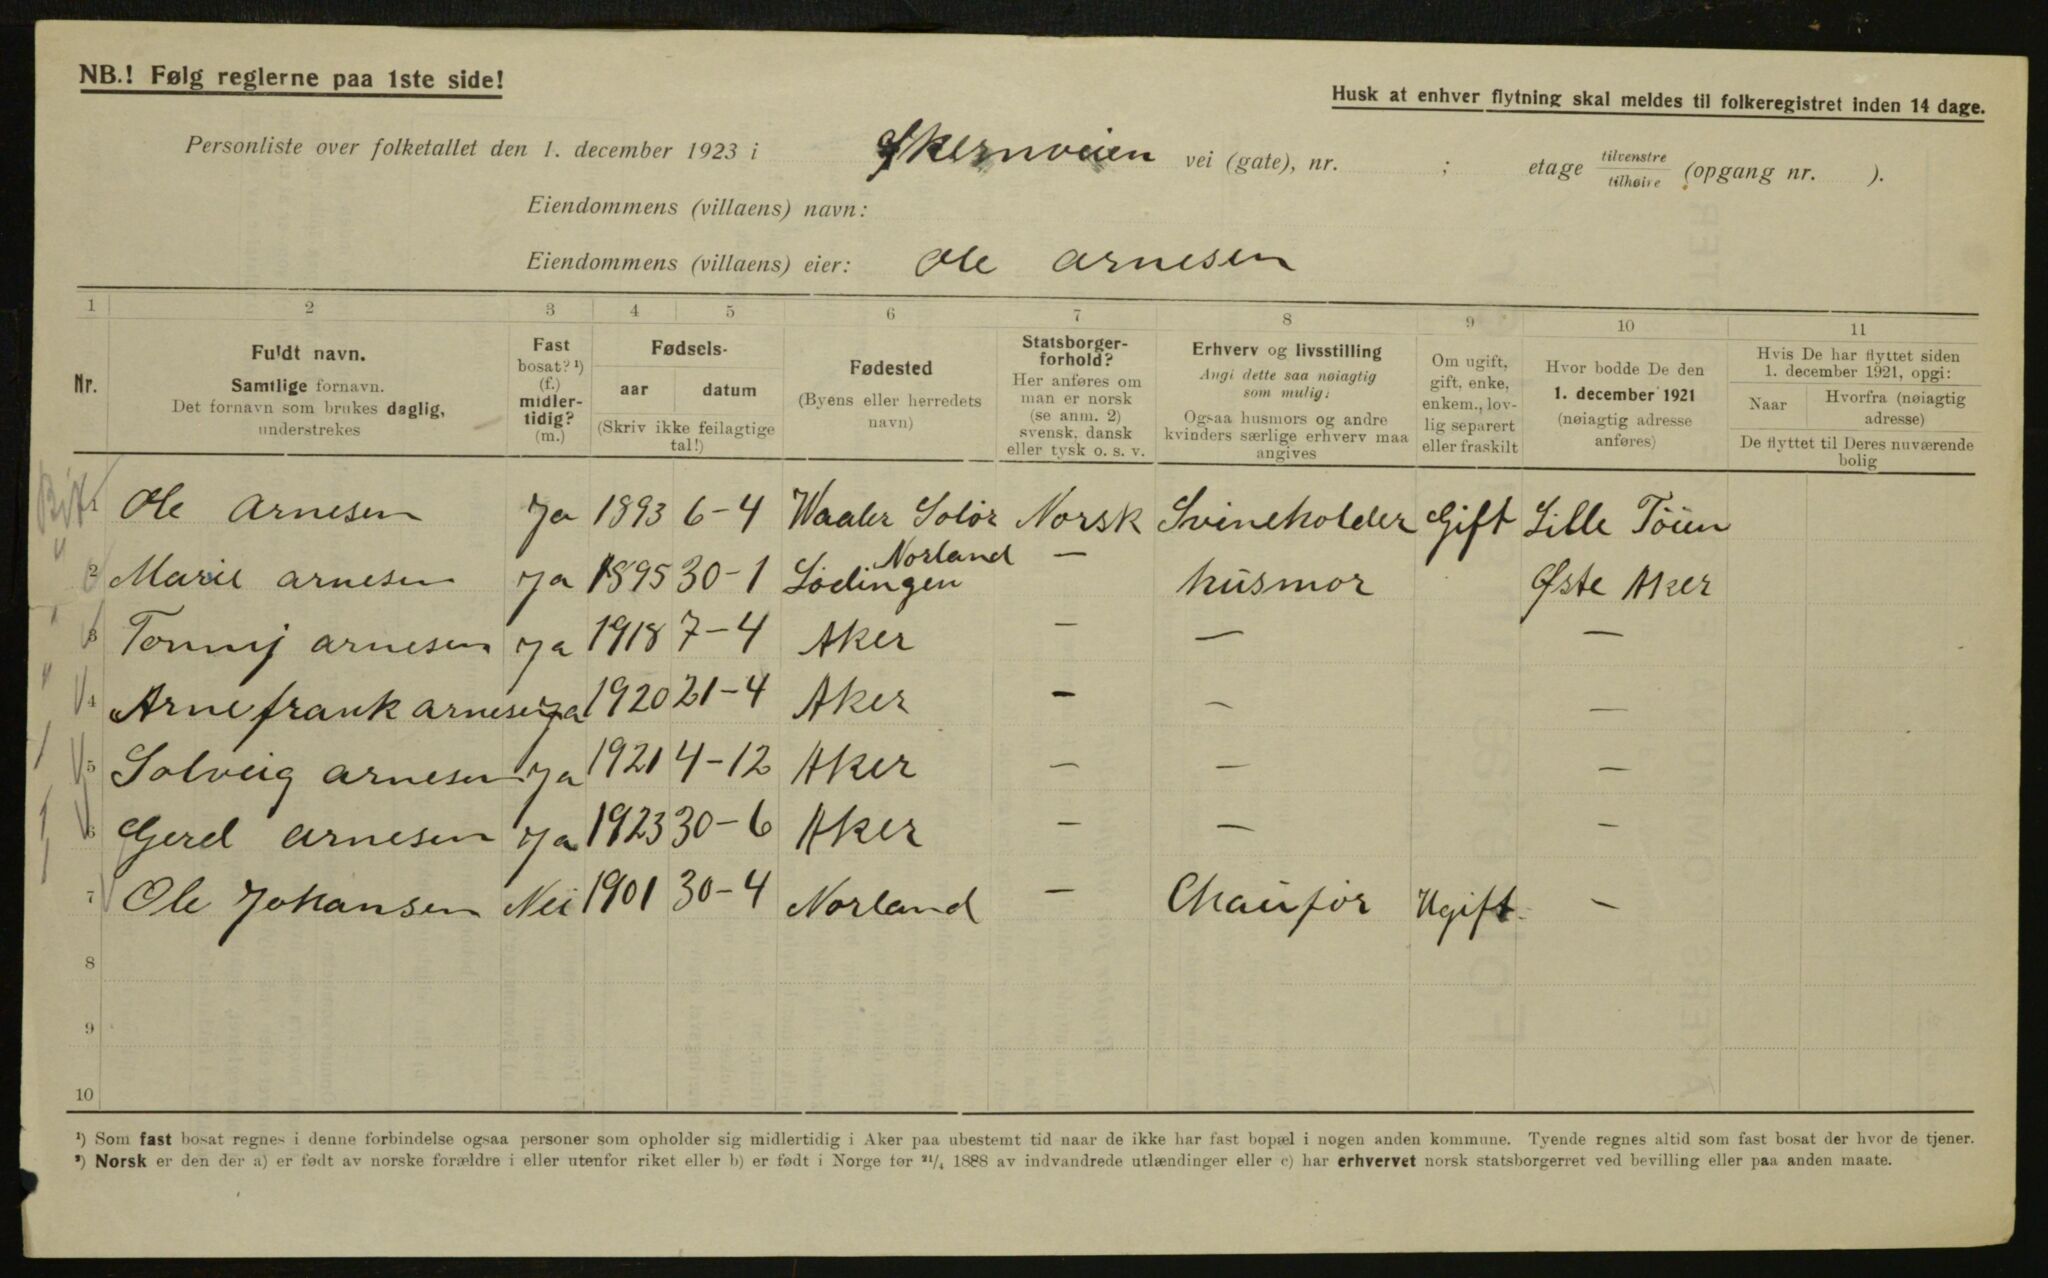 NB.! Følg reglerne paa 1ste side!
Husk at enhver flytning skal meldes til folkeregistret inden 14 dage.
Personliste over folketallet den 1. december 1923 i Økernveien vei (gate), nr. ; etage tilvenstre/tilhøire (opgang nr. ).
Eiendommens (villaens) navn:
Eiendommens (villaens) eier: Ole Arnesen
1 2 3 4 5 6 7 8 9 10 11
Nr.
Fuldt navn.
Samtlige fornavn.
Det fornavn som brukes daglig,
understrekes
Fast
bosat? ¹)
(f.)
midler-
tidig?
(m.)
Fødsels-
aar datum
(Skriv ikke feilagtige
tal!)
Fødested
(Byens eller herredets
navn)
Statsborger-
forhold?
Her anføres om
man er norsk
(se anm. 2)
svensk, dansk
eller tysk o. s. v.
Erhverv og livsstilling
Angi dette saa nøiagtig
som mulig:
Ogsaa husmors og andre
kvinders særlige erhverv maa
angives
Om ugift,
gift, enke,
enkem., lov-
lig separert
eller fraskilt
Hvor bodde De den
1. december 1921
(nøiagtig adresse
anføres)
Hvis De har flyttet siden
1. december 1921, opgi:
Naar Hvorfra (nøiagtig
adresse)
De flyttet til Deres nuværende
bolig
1 Ole Arnesen Ja 1893 6-4 Waaler Solør Norsk Svineholder Gift Lille Töien
2 Marie Arnesen Ja 1895 30-1 Lödingen Norland — husmor Øste Aker
3 Tonny Arnesen Ja 1918 7-4 Aker — — —
4 Arne frank Arnesen Ja 1920 21-4 Aker — — —
5 Solveig Arnesen Ja 1921 4-12 Aker — — —
6 Gerd Arnesen Ja 1923 30-6 Aker — — —
7 Ole Johansen Nei 1901 30-4 Norland — Chauför Ugift —
8
9
10
¹) Som fast bosat regnes i denne forbindelse ogsaa personer som opholder sig midlertidig i Aker paa ubestemt tid naar de ikke har fast bopæl i nogen anden kommune. Tyende regnes altid som fast bosat der hvor de tjener.
²) Norsk er den der a) er født av norske forældre i eller utenfor riket eller b) er født i Norge før 21/4 1888 av indvandrede utlændinger eller c) har erhvervet norsk statsborgerret ved bevilling eller paa anden maate.